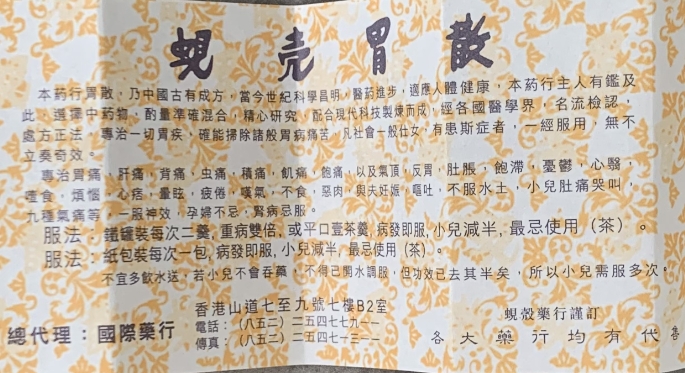 蜆壳胃散
本药行胃散，乃中國古有成方，當今世紀科學昌明，醫药進步，適應人體健康，本药行主人有鑑及
此，選擇中药物，酌量準確混合，精心研究，配合現代科技製煉而成，經各國醫學界，名流檢認，
處方正法，專治一切胃疾，確能掃除諸般胃病痛苦，凡社會一般仕女，有患斯症者，一經服用，無不
立奏奇效。
專治胃痛，肝痛，背痛，虫痛，積痛，飢痛，飽痛，以及氣頂，反胃，肚脹，飽滯，憂鬱，心翳，
噎食，煩惱，心痞，暈眩，疲倦，嘆氣，不食，惡肉，與夫妊娠，嘔吐，不服水土，小兒肚痛哭叫，
九種氣痛等，一服神效，孕婦不忌，腎病忌服。
服法：鐵罐裝每次二羹，重病雙倍，或平口壹茶羹，病發即服，小兒減半，最忌使用（茶）。
服法：紙包裝每次一包，病發即服，小兒減半，最忌使用（茶）。
不宜多飲水送，若小兒不會吞藥，不得已開水調服，但功效已去其半矣，所以小兒需服多次。
總代理：國際藥行
香港山道七至九號七樓B2室
電話：（八五二）二五四七七九一一
傳真：（八五二）二五四七一三一一
蜆殼藥行謹訂
各大藥行均有代售